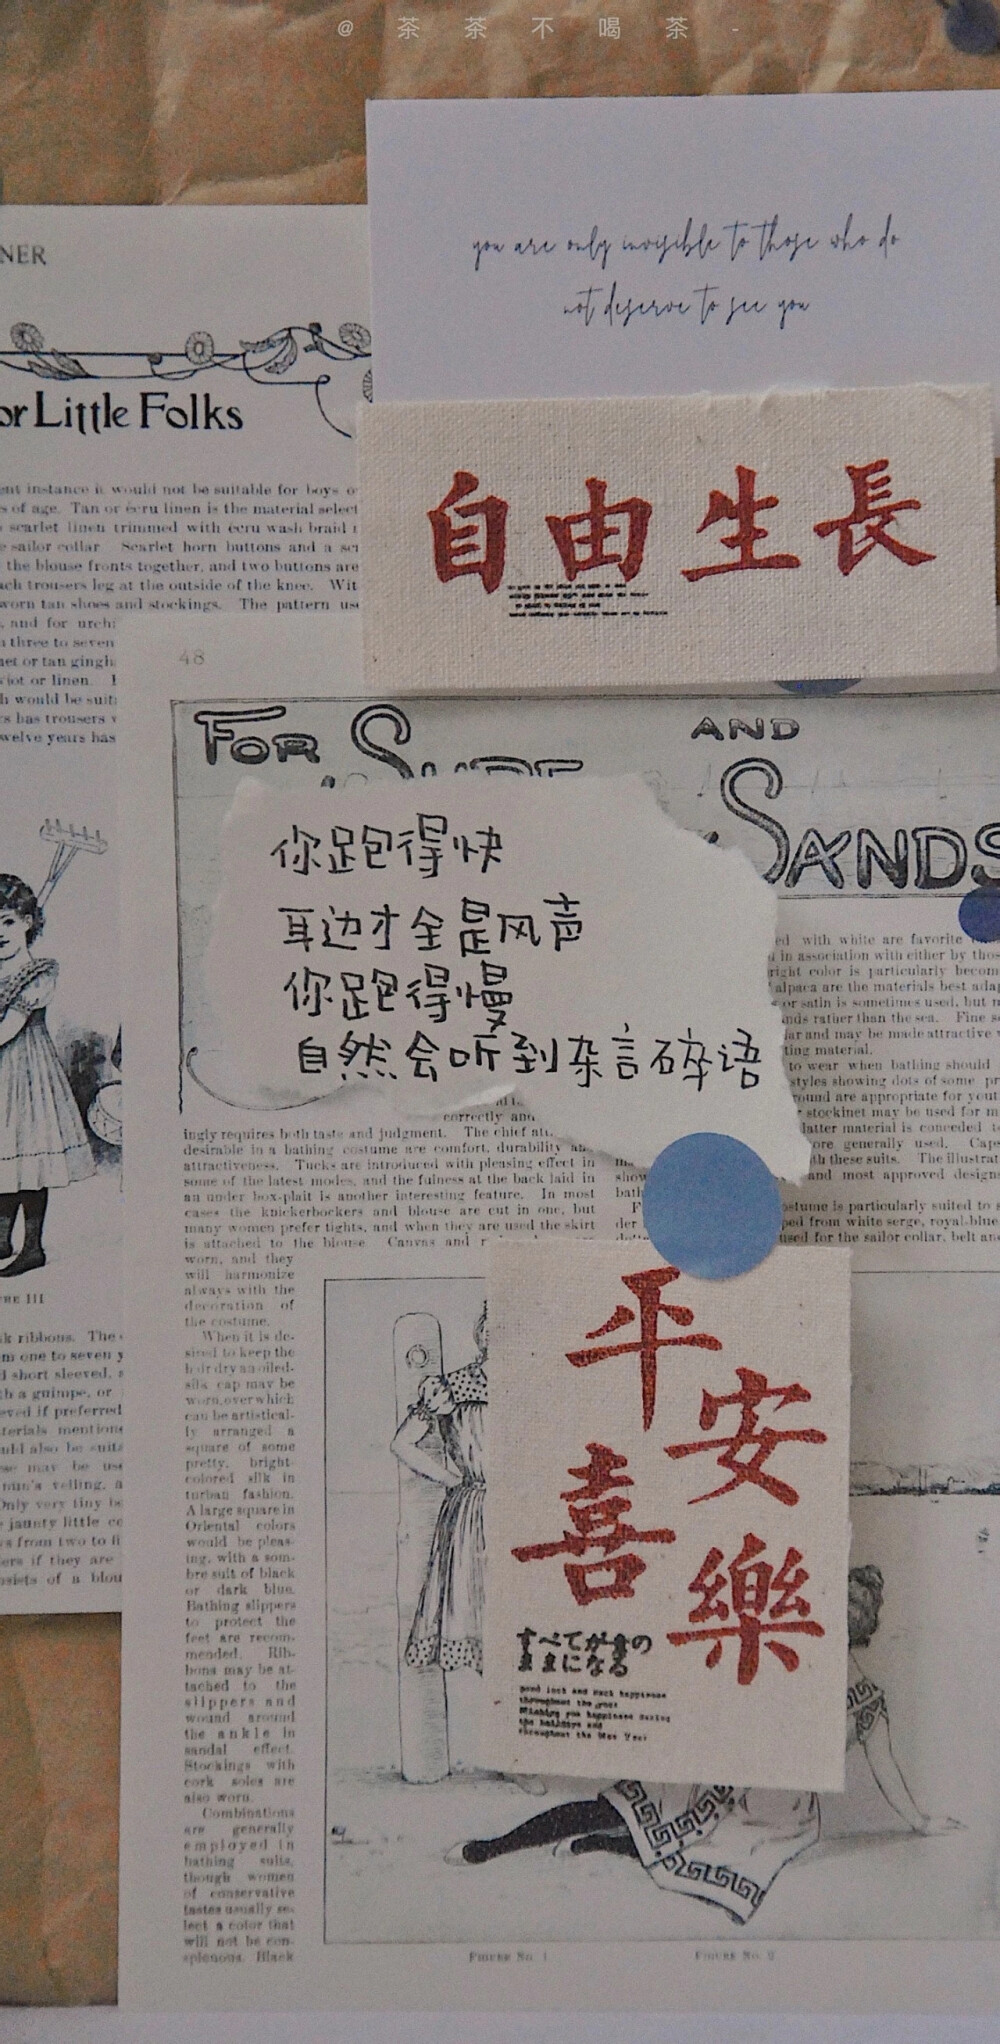 @茶茶不喝茶-
you are only invisible to those who do
not deserve to see you
NER
or Little Folks
ent instance it would not be suitable for boys o
s of age. Tan or écru linen is the material select
scarlet linen trimmed with écru wash braid
e sailor collar Scarlet horn buttons and a
the blouse fronts together, and two buttons are
ach trousers leg at the outside of the knee. Wit
worn tan shoes and stockings. The pattern
and for
three to seven
net or tan
viot or linen.
h would be
rs has trousers
welve years has
自由生長
48
FOR
AND
SANDS
你跑得快
耳边才全是风声
你跑得慢
自然会听到杂言碎语
ed with white are favorite
in association with either by
right color is particularly
alpaca are the materials best
or satin is sometimes used, but
nds rather than the sea. Fine
far and may be made attractive
ting material.
to wear when bathing should
styles showing dots of some
round are appropriate for
stockinet may be used for
latter material is conceded
ore generally used.
th these suits. The
and most approved
ostume is particularly suited to
ped from white serge,
used for the sailor collar, belt
correctly and
ingly requires both taste and judgment. The chief
desirable in a bathing costume are comfort, durability
attractiveness. Tucks are introduced with pleasing effect in
some of the latest modes, and the fulness at the back laid in
an under box-plait is another interesting feature. In most
cases the knickerbockers and blouse are cut in one, but
many women prefer tights, and when they are used the skirt
is attached to the blouse Canvas and
worn, and they
will harmonize
always with the
decoration of
the costume.
When it is de-
sired to keep the
hair dry an oiled-
silk cap may be
worn, over which
can be artistical-
ly arranged a
square of some
pretty, bright-
colored silk in
turban fashion.
A large square in
Oriental colors
would be pleas-
ing, with a som-
bre suit of black
or dark blue.
Bathing slippers
to protect the
feet are recom-
mended. Rib-
bons may be at-
tached to the
slippers and
wound around
the ankle in
sandal effect.
Stockings with
cork soles are
also worn.
Combinations
are generally
employed in
bathing suits,
though women
of conservative
tastes usually se-
lect a color that
will not be con-
spicuous. Black
平安
喜樂
すべてが意の
ままになる
good luck and much happiness
throughout the year
Wishing you happiness during
the holidays and
throughout the New Year
III
k ribbons. The
m one to seven
d short sleeved,
h a guimpe, or
eved if preferred
terials
uld also be
se may be
veiling,
Only very tiny
jaunty little
s from two to
ers if they are
sists of a
FIGURE No. 1
FIGURE No. 2